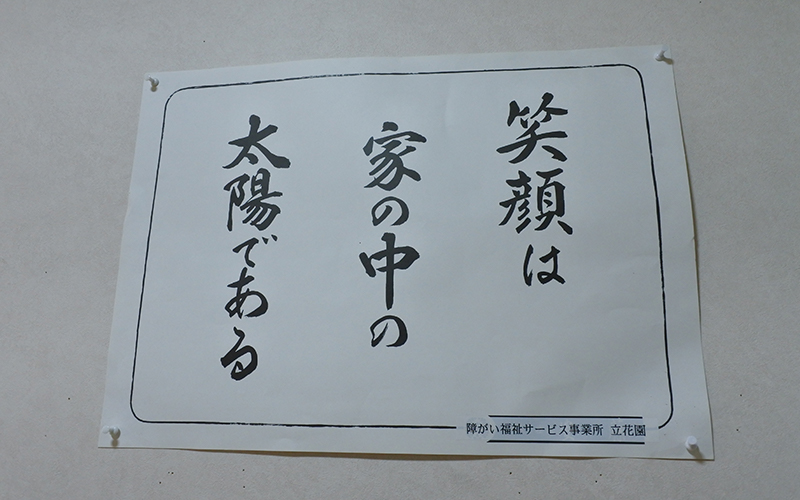 笑顔は
家の中の
太陽である
障がい福祉サービス事業所 立花園